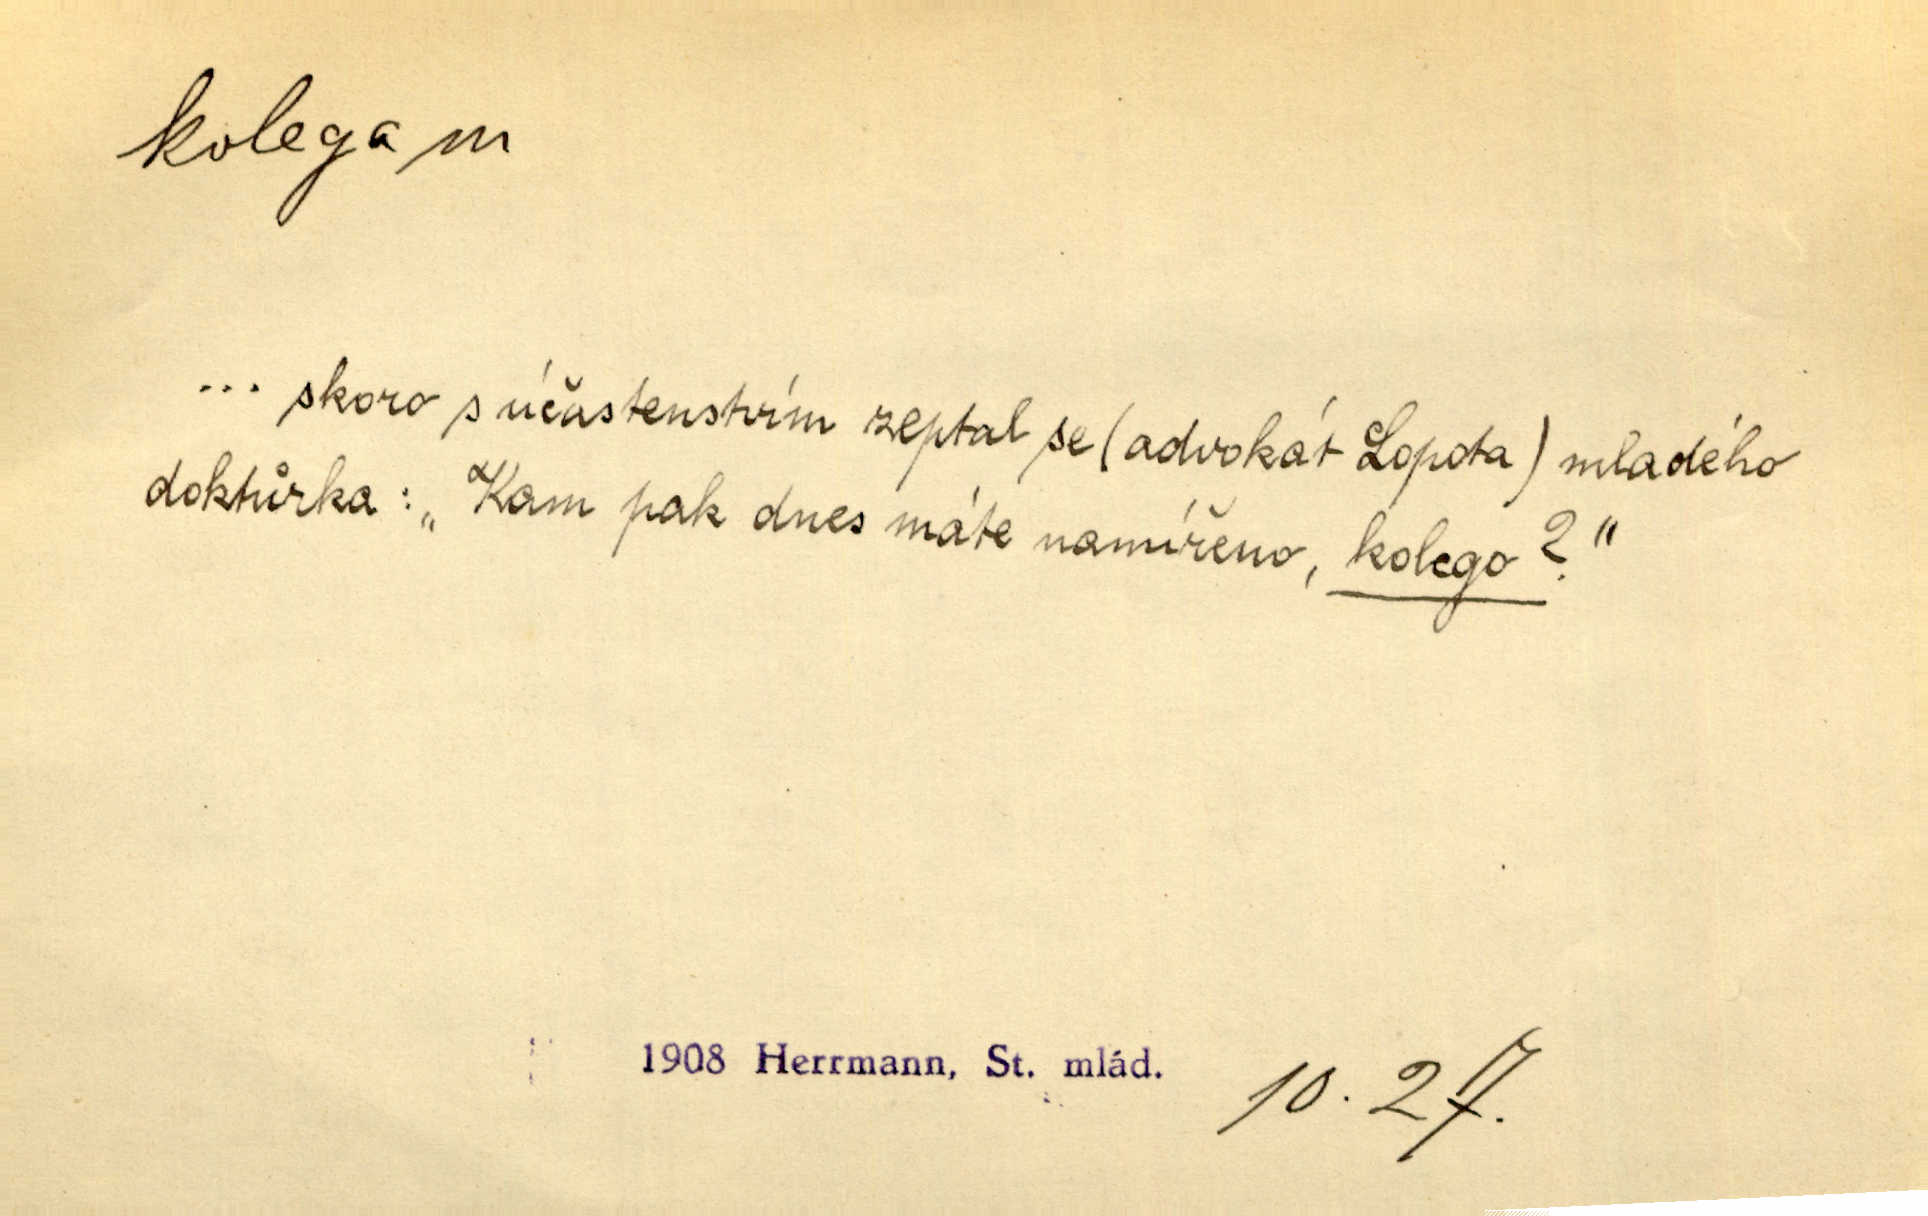 kolega m
... skoro s účastenstvím zeptal se (advokát Lopota) mladého
doktůrka: „Kam pak dnes máte namířeno, kolego?"
1908 Herrmann, St. mlád. 10. 27.